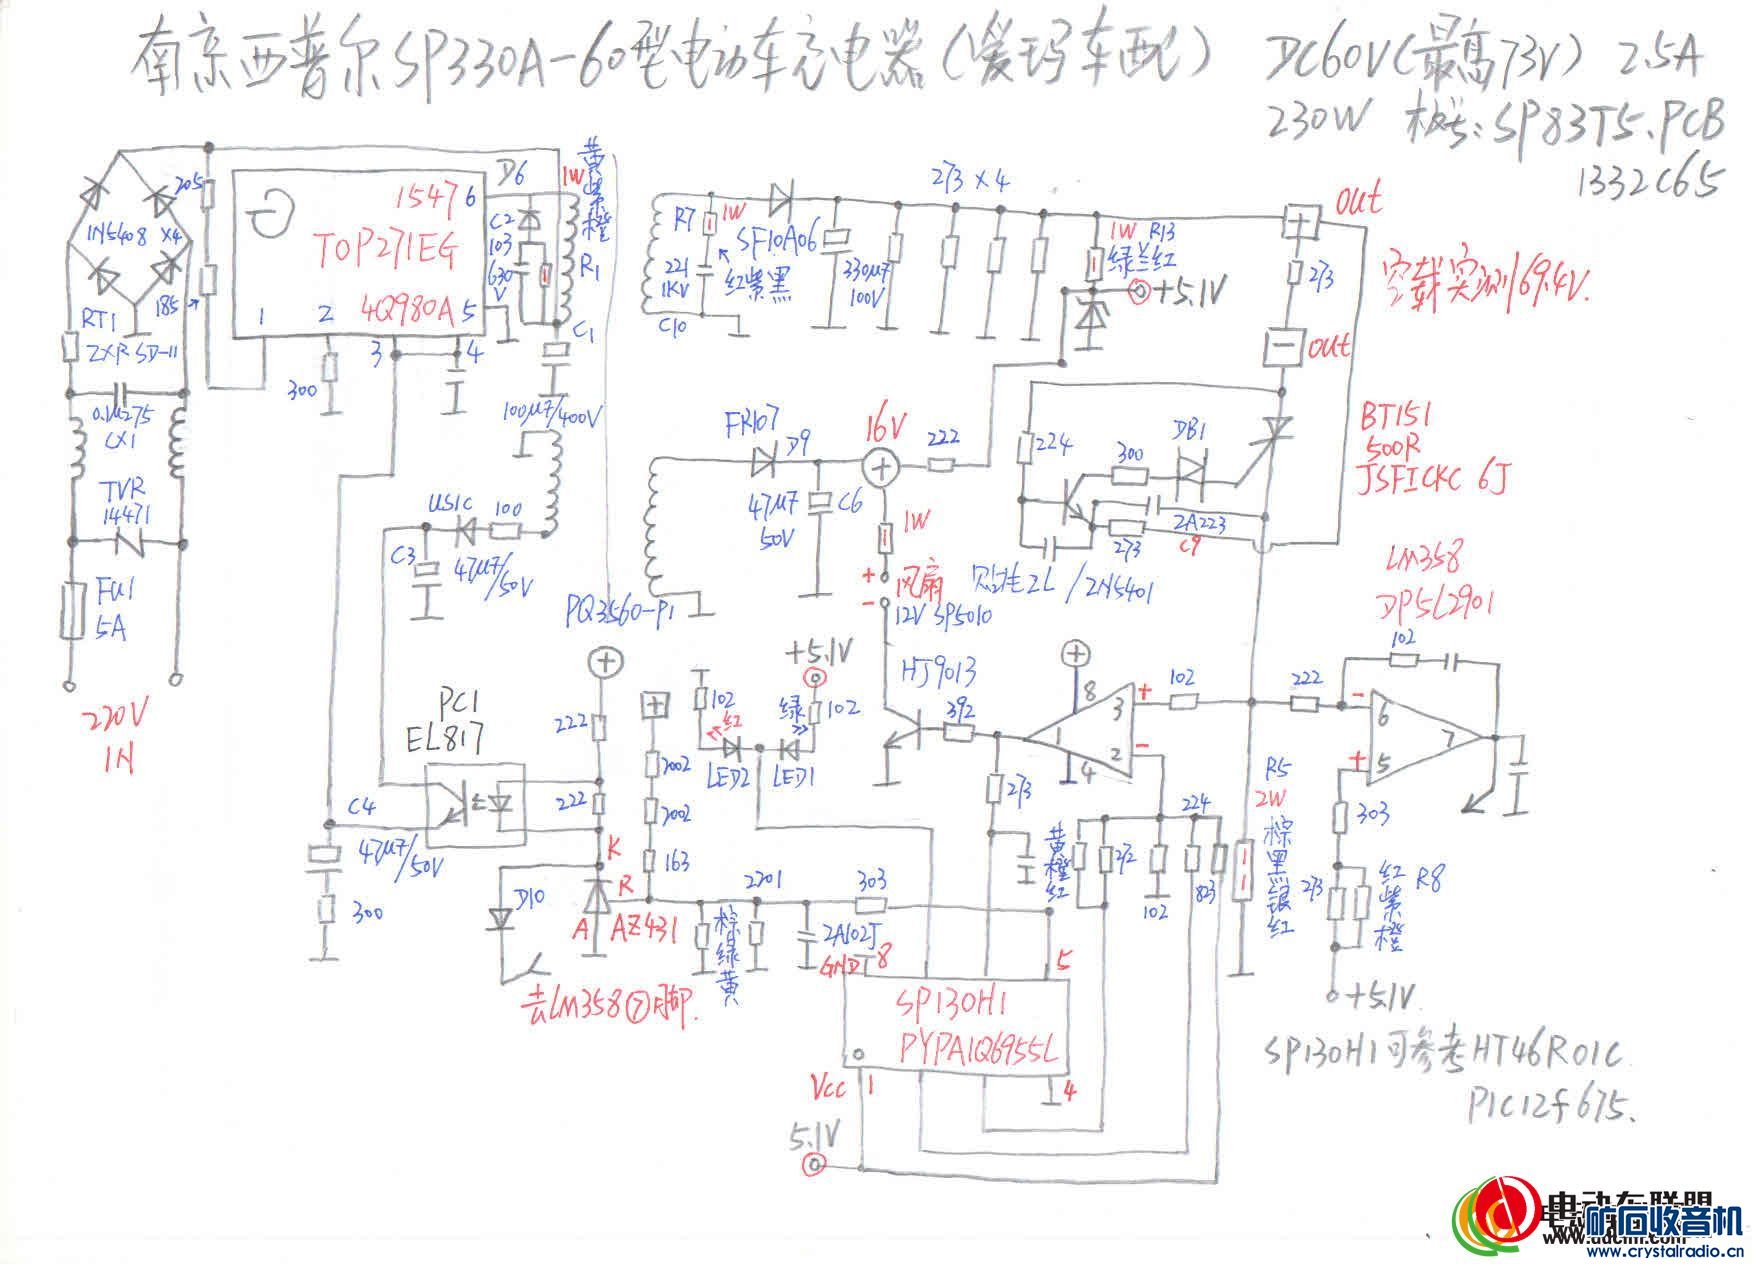 南京西普尔SP330A-60型电动车充电器(爱玛车配) DC60V(最高73V) 2.5A
230W 板号:SP83T5.PCB
1332C65
205
1N5408 X4
185
RT1
0.1μ275
CX1
TVR
14471
FU1
5A
220V
IN
1547 6
TOP271EG
4Q980A 5
1 2
3 4
300
D6
C2
103
630
V
1W
黄紫橙
R1
C1
100μF/400V
US1C 100
C3
47μF/50V
PQ3560-P1
R7
1W
221
1KV
红紫黑
C10
SF10A06
330μF
100V
273 X 4
1W R13
绿兰红
+5.1V
+ out
273
- out
空载实测69.4V.
FR107
D9
47μF
50V
C6
16V
+
222
1W
+ 风扇
-
12V SP5010
224
300
DB1
2A223
C9
273
贴片2L/2N5401
BT151
500R
LM358
HJ9013
392
273
+
8
3
1
2
4
+
-
102
222
102
6
5
7
-
+
303
273
红紫橙
R8
+5.1V
R5
2W
棕黑银红
224
黄橙红
272
102
823
PC1
EL817
+
222
222
C4
47μF/50V
300
D10
K
R
A AZ431
去LM358⑦脚.
+
2002
2002
163
102
红
LED2
+5.1V
绿
102
LED1
2201
棕绿黄
2A102J
303
GND 8
5
SP130H1
PYPA1Q6955L
Vcc 1
4
5.1V
SP130H1可参考HT46R01C
PIC12f675.
电动车联盟
矿石收音机
www.crystalradio.cn